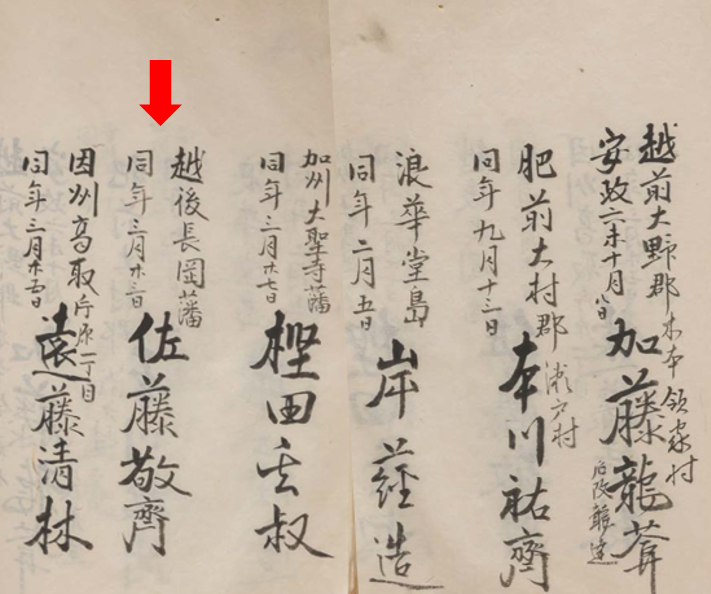 越前大野郡木本領家村
安政六未十月八日
加藤龍葊
后改
肥前大村郡瀬戸村
同年九月十三日
本川祐齊
浪華堂島
同年二月五日
岸 造
加州大聖寺藩
同年三月廿七日
樫田玄叔
越後長岡藩
同年三月廿三日
佐藤敬齊
因州高取片原一丁目
同年三月廿五日
遠藤清林